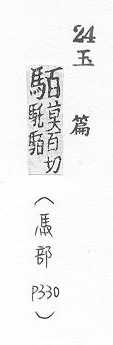 24 玉篇
䭦莫百切
䭦驢
（馬部 P330）